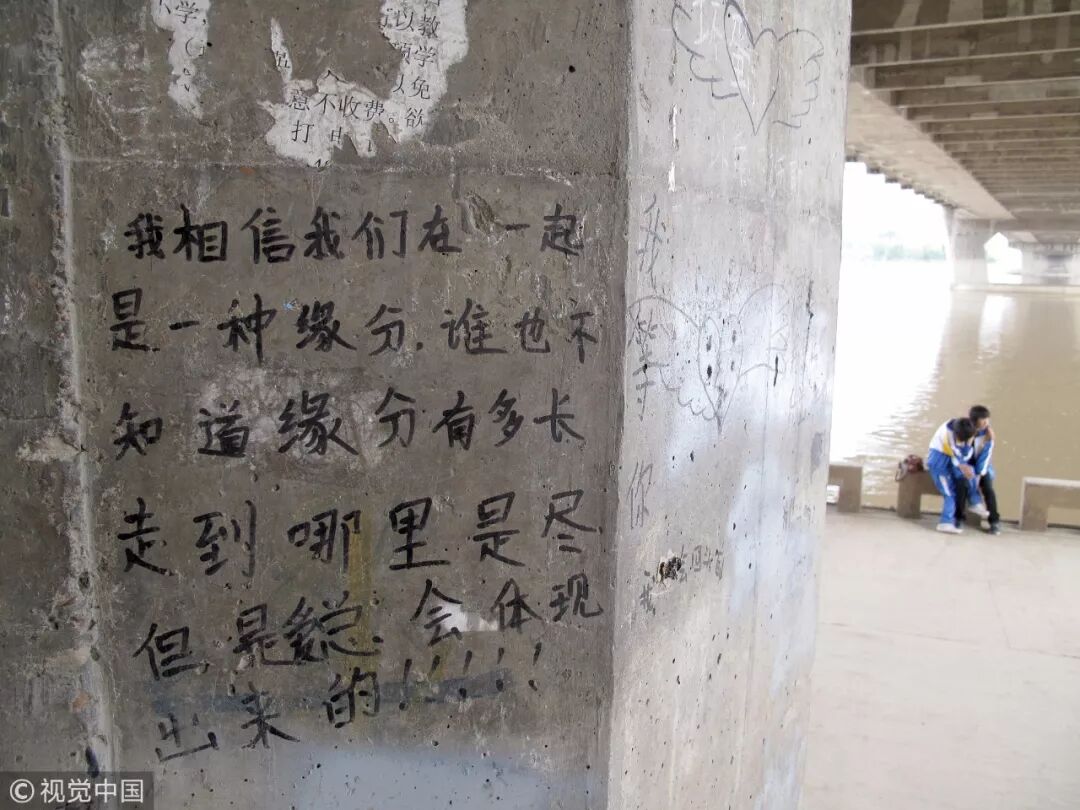 以教
项学
意不收费。
以免
打
欲
我相信我们在一起
是一种缘分.谁也不
知道缘分有多长
走到哪里是尽
但是总会体现
出来的!!!!!
我等你
© 视觉中国